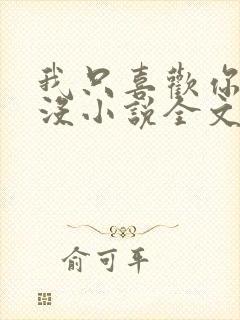 我只喜歡你
沒小說全文
俞可平